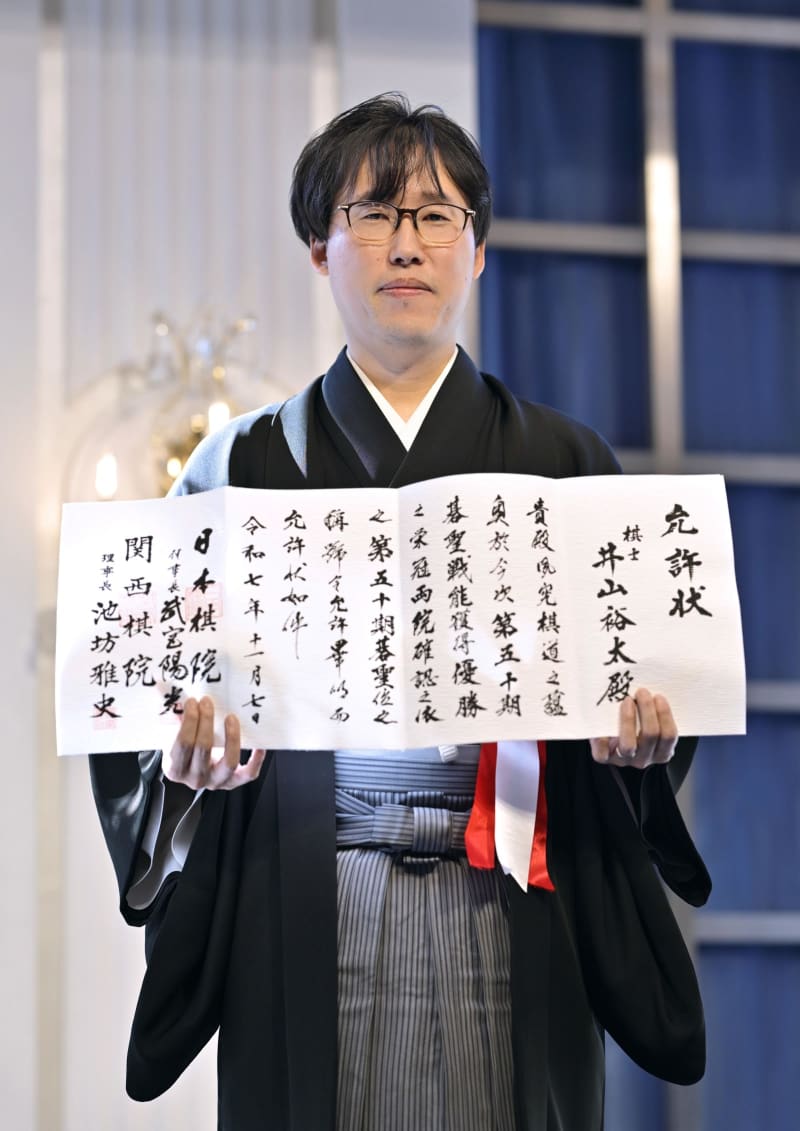 允許状
棋士
井山裕太殿
貴殿夙究棋道之蘊
奥於今次第五十期
碁聖戦能獲得優勝
之栄冠両院確認之依
之第五十期碁聖位之
称号令允許畢仍而
允許状如件
令和七年十一月七日
日本棋院
理事長 武宮陽光
関西棋院
理事長 池坊雅史